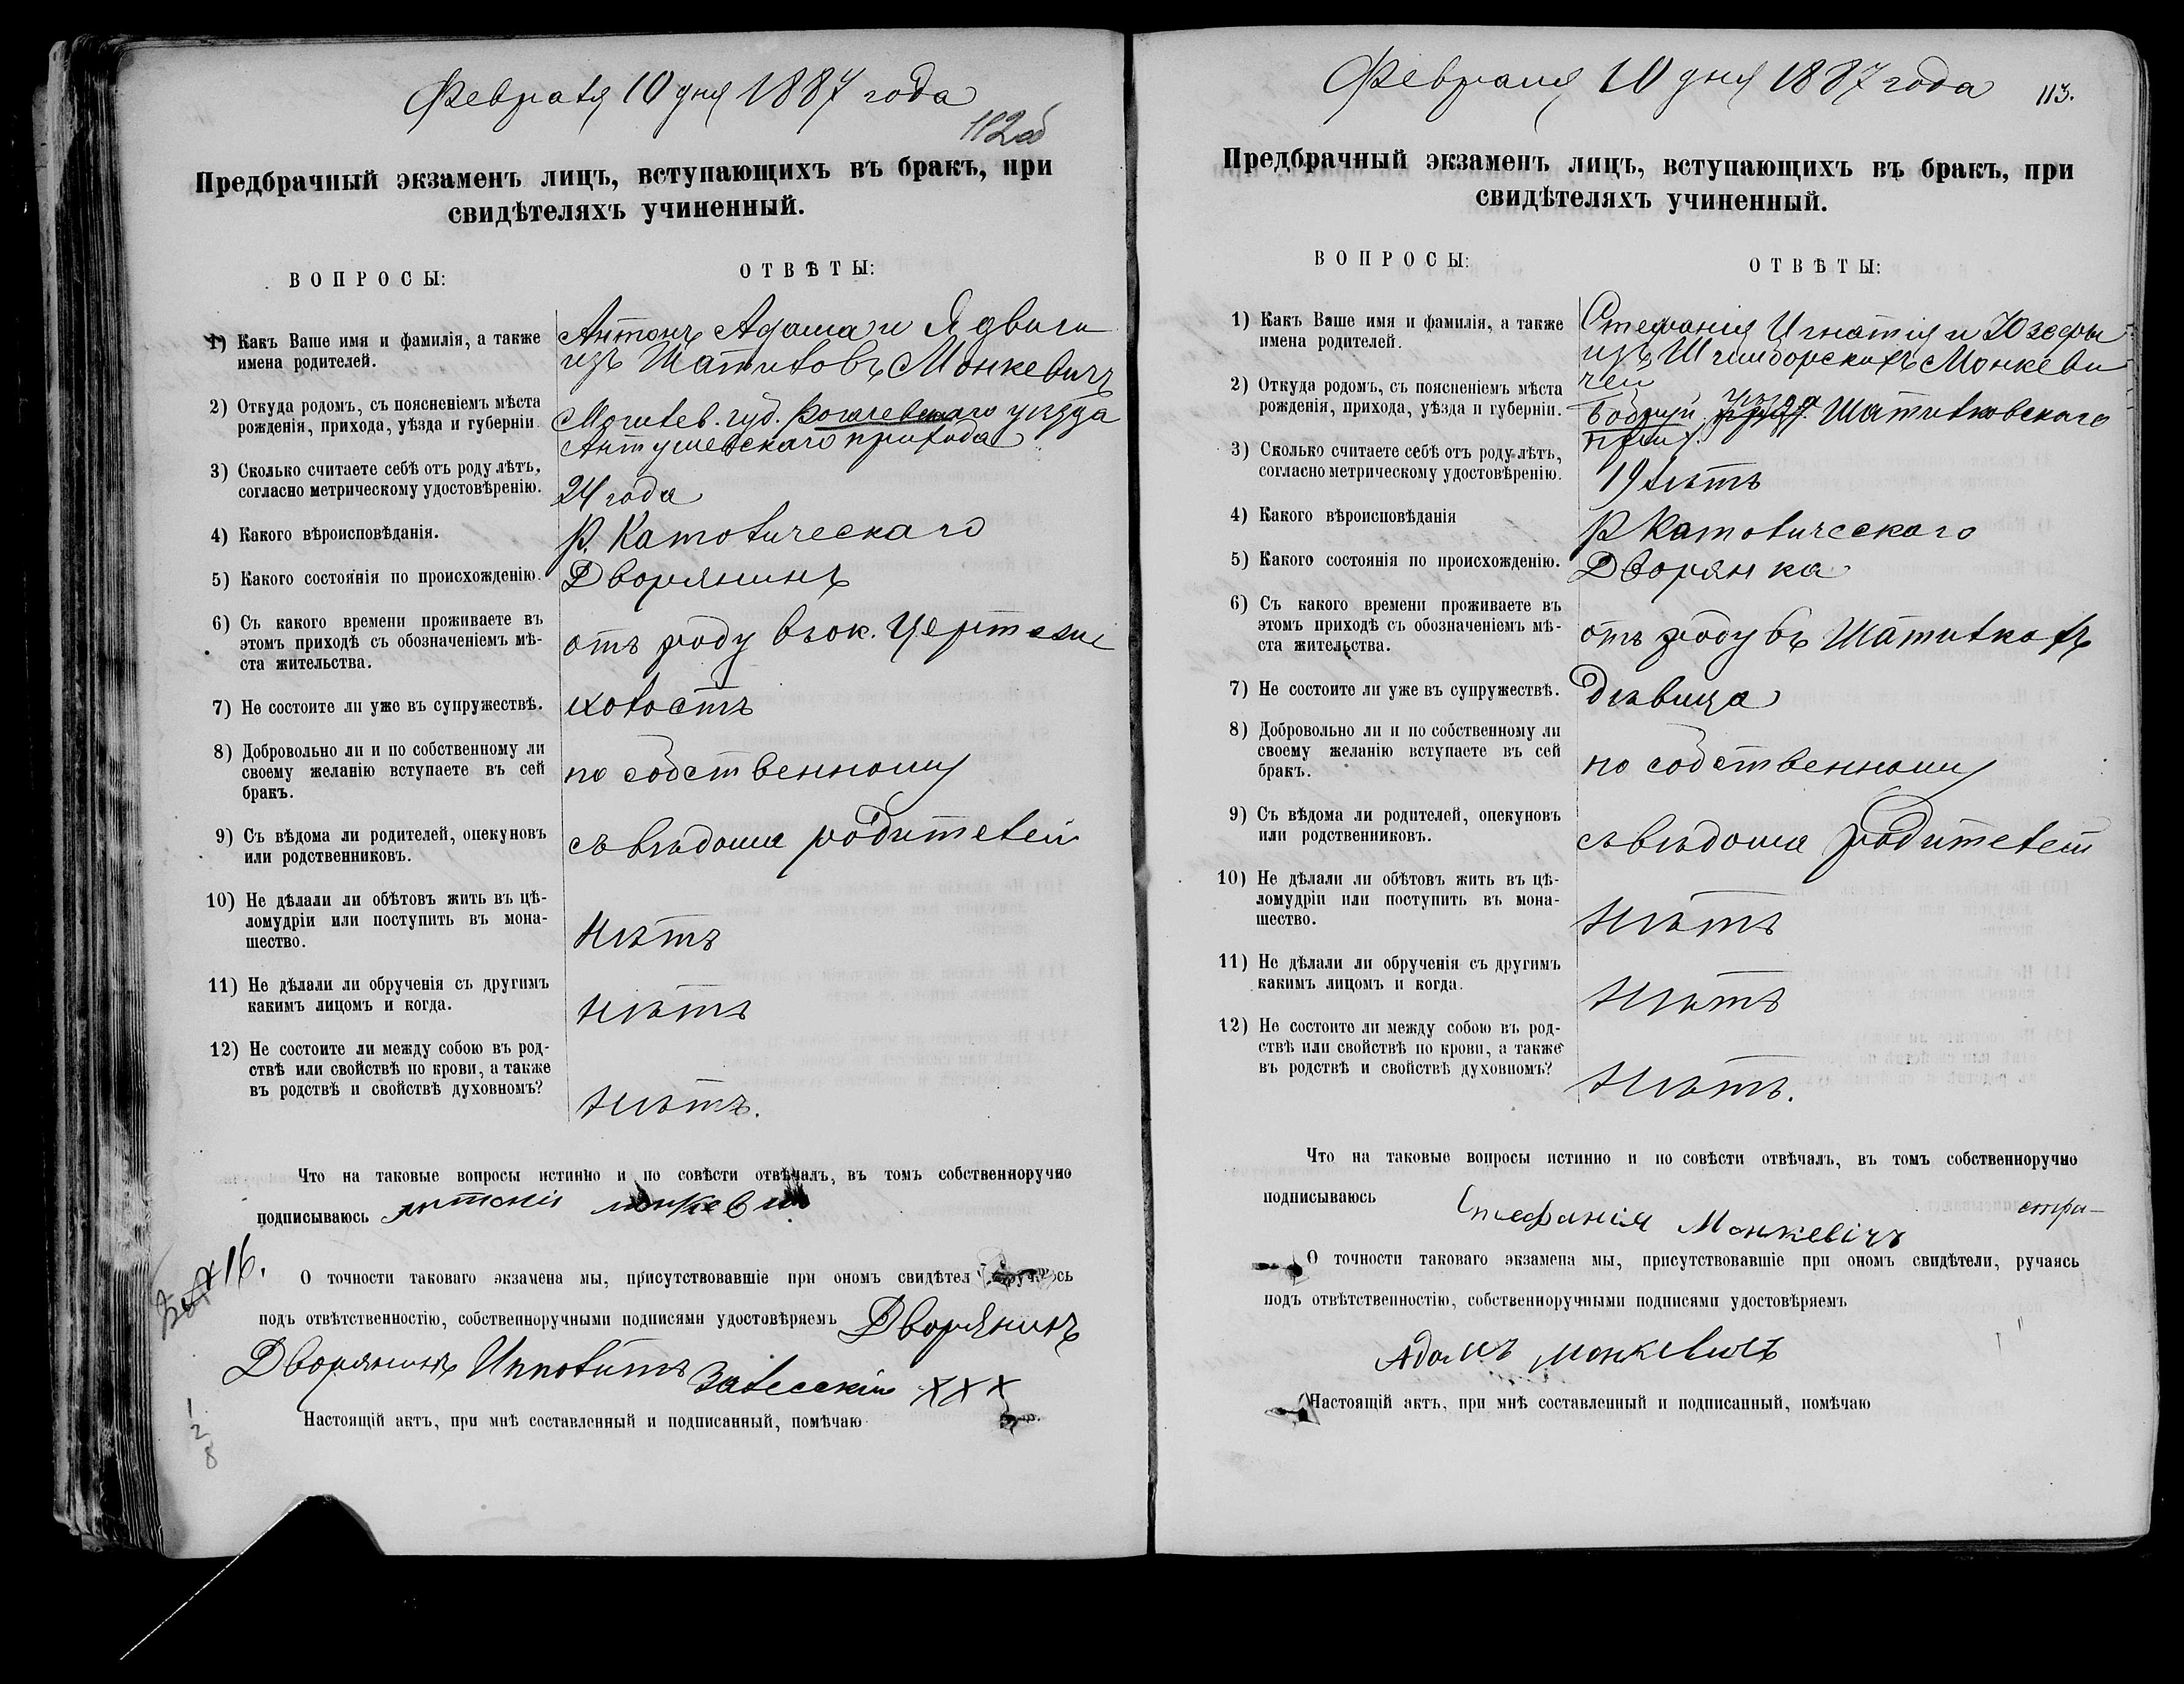 Февраля 10 дня 1887 года
112об
Предбрачный экзаменъ лицъ, вступающихъ въ бракъ, при
свидѣтеляхъ учиненный.
ВОПРОСЫ: ОТВѢТЫ:
1) Какъ Ваше имя и фамилія, а также
имена родителей.
Антонъ Адама и Ядвиги
изъ Шатиловъ Монкевичъ
2) Откуда родомъ, съ поясненіемъ мѣста
рожденія, прихода, уѣзда и губерніи.
Могилев. губ. Рогачевскаго уѣзда
Антушевскаго прихода
3) Сколько считаете себѣ отъ роду лѣтъ,
согласно метрическому удостовѣренію.
24 года
4) Какого вѣроисповѣданія.
Р. Католическаго
5) Какого состоянія по происхожденію.
Дворянинъ
6) Съ какого времени проживаете въ
этомъ приходѣ съ обозначеніемъ мѣ-
ста жительства.
отъ роду въ ок.
7) Не состоите ли уже въ супружествѣ.
холостъ
8) Добровольно ли и по собственному ли
своему желанію вступаете въ сей
бракъ.
по собственному
9) Съ вѣдома ли родителей, опекуновъ
или родственниковъ.
съ вѣдома родителей
10) Не дѣлали ли обѣтовъ жить въ цѣ-
ломудріи или поступить въ мона-
шество.
Нѣтъ
11) Не дѣлали ли обрученія съ другимъ
какимъ лицомъ и когда.
Нѣтъ
12) Не состоите ли между собою въ род-
ствѣ или свойствѣ по крови, а также
въ родствѣ и свойствѣ духовномъ?
Нѣтъ.
Что на таковые вопросы истинно и по совѣсти отвѣчалъ, въ томъ собственноручно
подписываюсь
16.
О точности таковаго экзамена мы, присутствовавшіе при ономъ свидѣтел
подъ отвѣтственностію, собственноручными подписями удостовѣряемъ Дворянинъ
Дворянинъ Ипполитъ Залесскій ХХХ
Настоящій актъ, при мнѣ составленный и подписанный, помѣчаю
1
2
8
Февраля 10 дня 1887 года
113.
Предбрачный экзаменъ лицъ, вступающихъ въ бракъ, при
свидѣтеляхъ учиненный.
ВОПРОСЫ: ОТВѢТЫ:
1) Какъ Ваше имя и фамилія, а также
имена родителей.
Стефанія Игнатія и Юзефы
изъ Монкеви
чей
2) Откуда родомъ, съ поясненіемъ мѣста
рожденія, прихода, уѣзда и губерніи.
Бобруй. уѣзда Шатилковскаго
прих.
3) Сколько считаете себѣ отъ роду лѣтъ,
согласно метрическому удостовѣренію.
19 лѣтъ
4) Какого вѣроисповѣданія
Р Католическаго
5) Какого состоянія по происхожденію.
Дворянка
6) Съ какого времени проживаете въ
этомъ приходѣ съ обозначеніемъ мѣ-
ста жительства.
отъ роду въ Шатилкахъ
7) Не состоите ли уже въ супружествѣ.
дѣвица
8) Добровольно ли и по собственному ли
своему желанію вступаете въ сей
бракъ.
по собственному
9) Съ вѣдома ли родителей, опекуновъ
или родственниковъ.
съ вѣдома родителей
10) Не дѣлали ли обѣтовъ жить въ цѣ-
ломудріи или поступить въ мона-
шество.
Нѣтъ
11) Не дѣлали ли обрученія съ другимъ
какимъ лицомъ и когда.
Нѣтъ
12) Не состоите ли между собою въ род-
ствѣ или свойствѣ по крови, а также
въ родствѣ и свойствѣ духовномъ?
Нѣтъ.
Что на таковые вопросы истинно и по совѣсти отвѣчалъ, въ томъ собственноручно
подписываюсь
Стефанія Монкевічъ
О точности таковаго экзамена мы, присутствовавшіе при ономъ свидѣтели, ручаясь
подъ отвѣтственностію, собственноручными подписями удостовѣряемъ
Адамъ Монкевичъ
Настоящій актъ, при мнѣ составленный и подписанный, помѣчаю